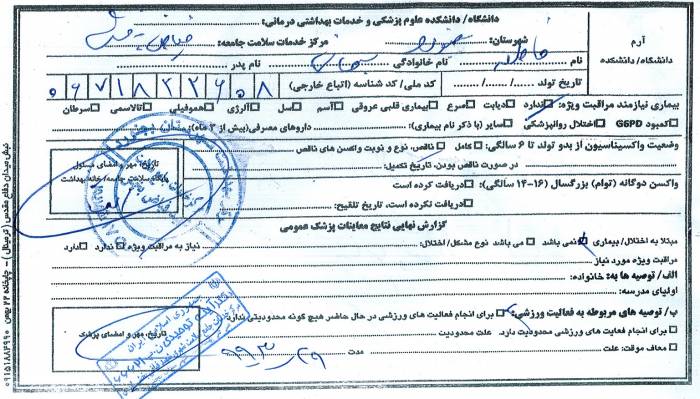 دانشگاه/ دانشکده علوم پزشکی و خدمات بهداشتی درمانی:
آرم
دانشگاه/ دانشکده
شهرستان: مرکز خدمات سلامت جامعه:
نام نام خانوادگی نام پدر
تاریخ تولد ..../..../.... کد ملی/ کد شناسه (اتباع خارجی) ۰۶۷۱۸۳۲۶۰۸
بیماری نیازمند مراقبت ویژه: ندارد دیابت صرع بیماری قلبی عروقی آسم سل آلرژی هموفیلی تالاسمی سرطان
کمبود G6PD اختلال روانپزشکی سایر (با ذکر نام بیماری): داروهای مصرفی(بیش از ۳ ماه):
وضعیت واکسیناسیون از بدو تولد تا ۶ سالگی: کامل ناقص، نوع و نوبت واکسن های ناقص
در صورت ناقص بودن، تاریخ تکمیل:
تاریخ، مهر و امضای مسئول
پایگاه سلامت جامعه/ خانه بهداشت
واکسن دوگانه (توام) بزرگسال (۱۶-۱۴ سالگی): دریافت کرده است
دریافت نکرده است، تاریخ تلقیح:
گزارش نهایی نتایج معاینات پزشک عمومی
مبتلا به اختلال/ بیماری نمی باشد می باشد نوع مشکل/ اختلال: نیاز به مراقبت ویژه ندارد دارد
مراقبت ویژه مورد نیاز
الف/ توصیه ها به: خانواده:
اولیای مدرسه:
ب/ توصیه های مربوطه به فعالیت ورزشی: برای انجام فعالیت های ورزشی در حال حاضر هیچ گونه محدودیتی ندارد
برای انجام فعالیت های ورزشی محدودیت دارد. علت محدودیت
معاف موقت: علت مدت
تاریخ، مهر و امضای پزشک
۹۹,۳,۲۹
نبش میدان دفاع مقدس (ترمینال) - چاپخانه ۲۲ بهمن ۰۹۱۵۱۸۸۳۹۹۰